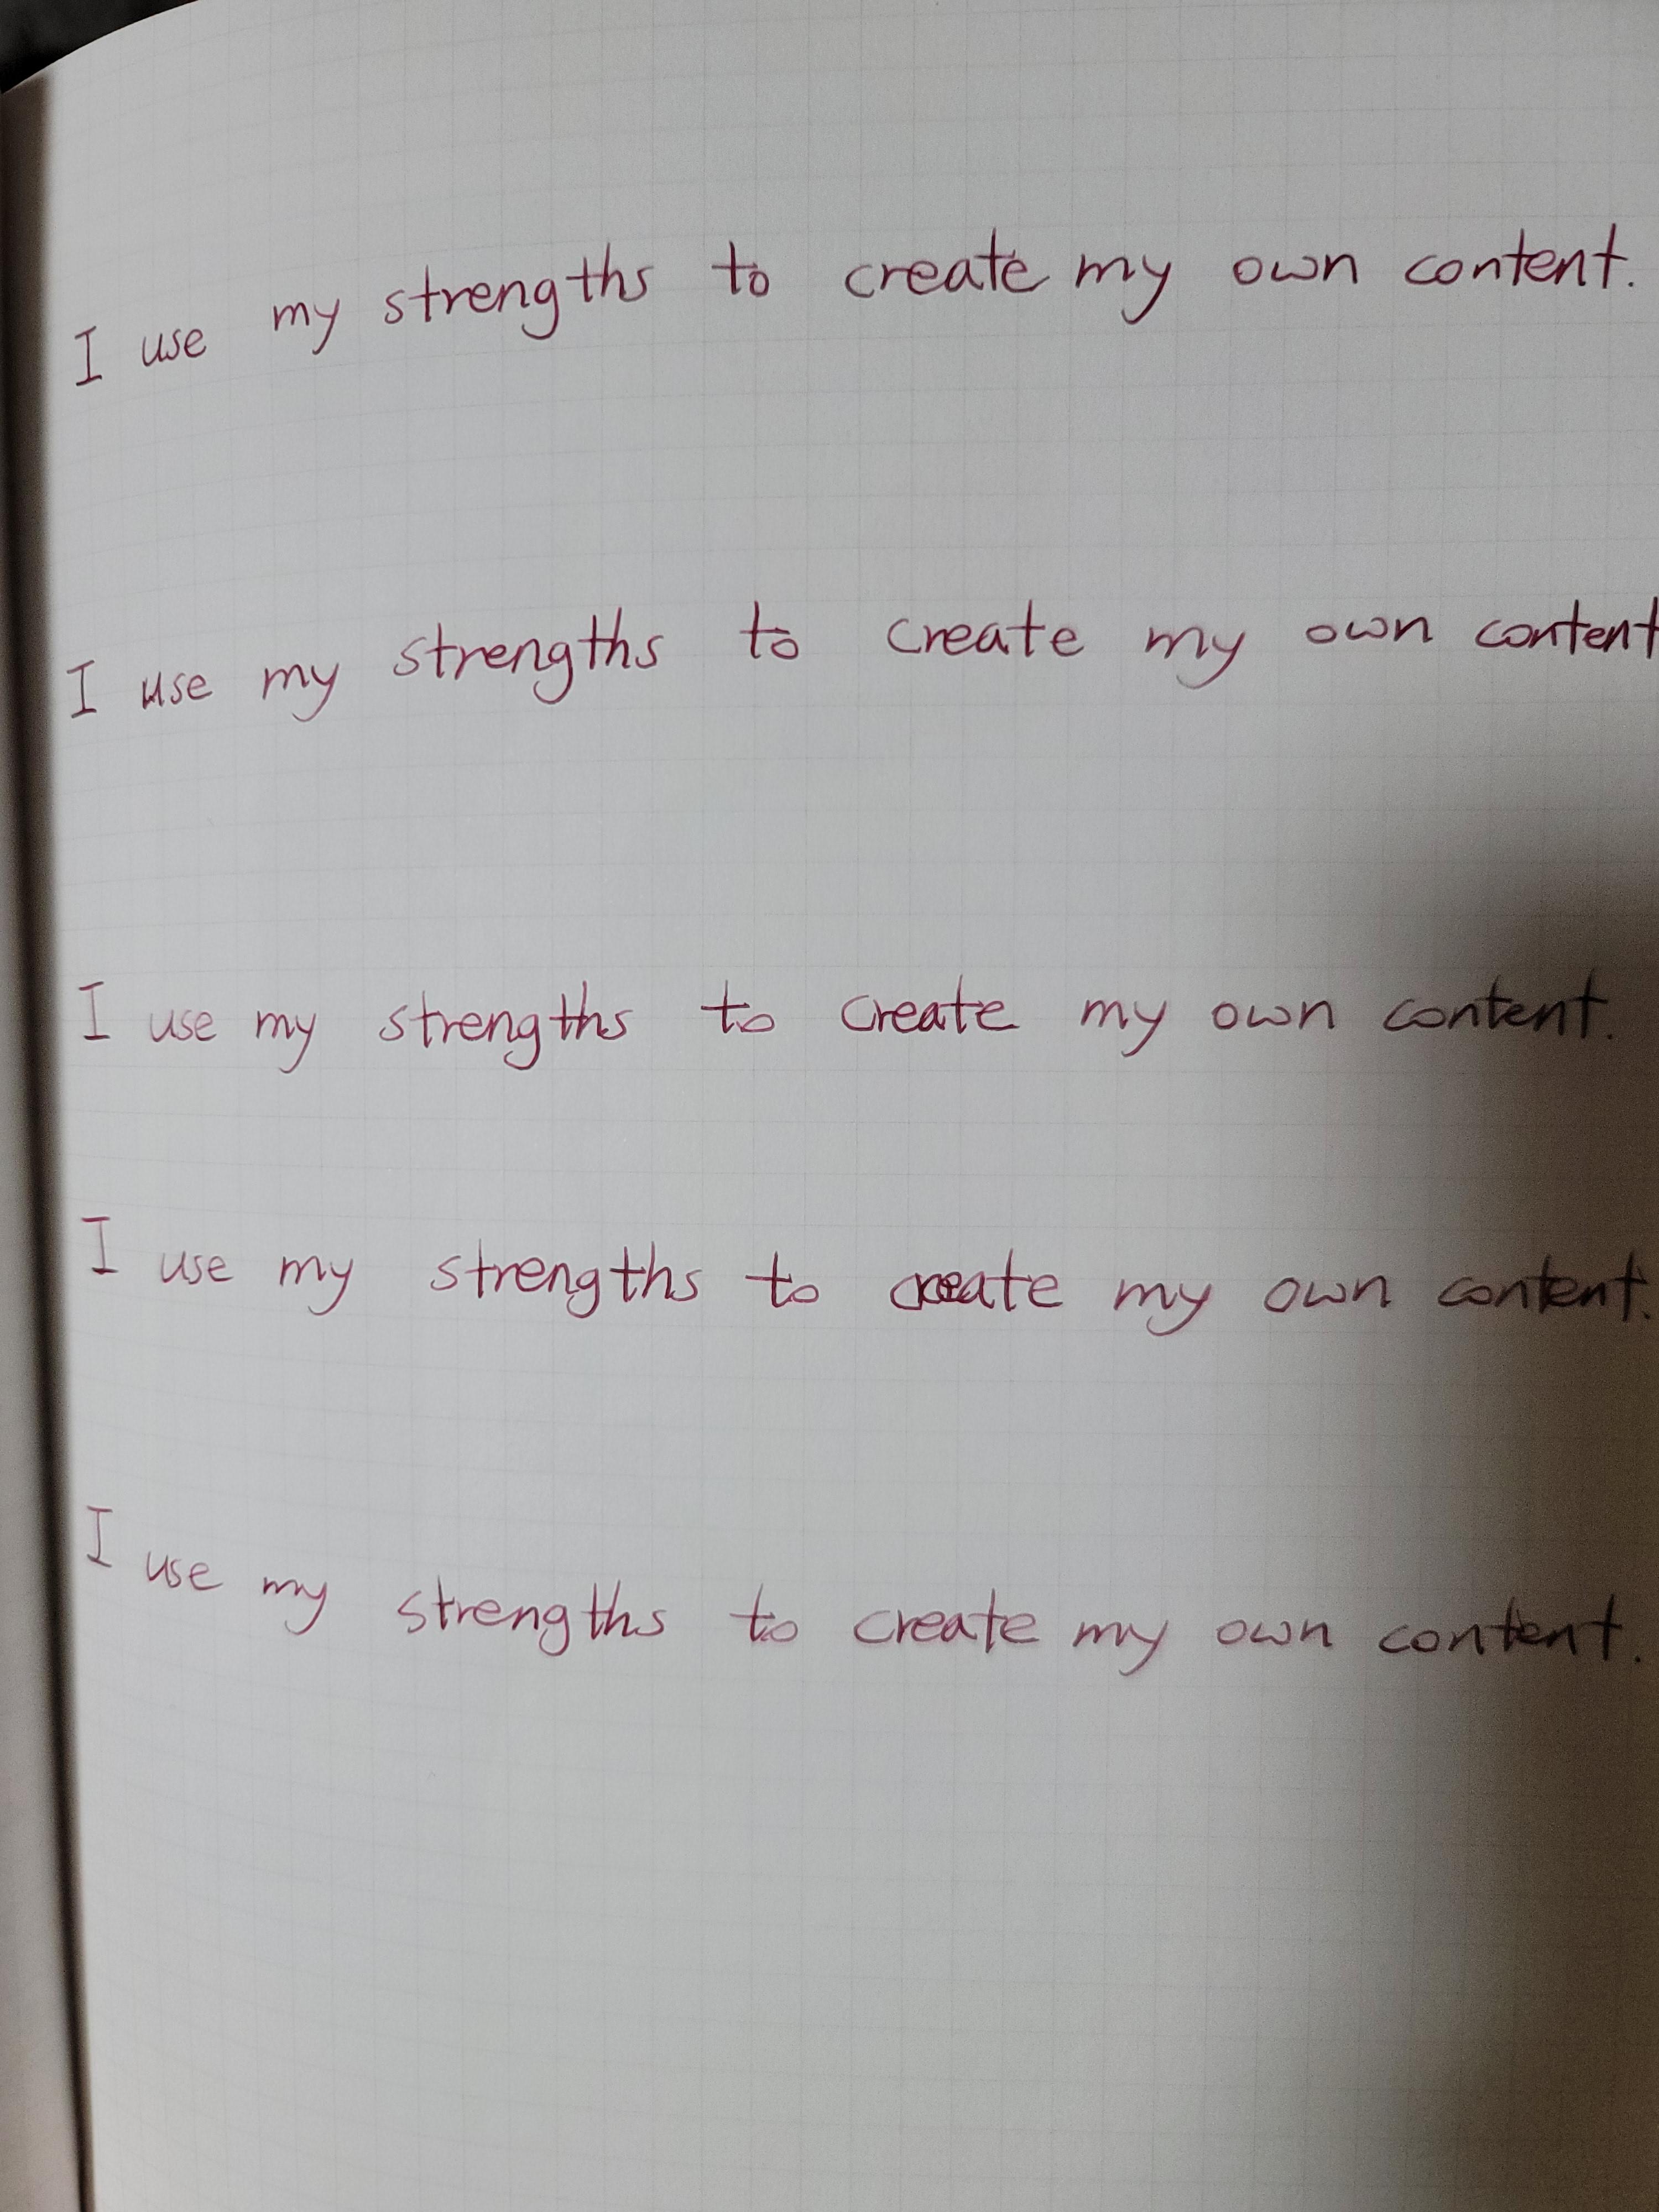 I use my strengths to create my own content.
I use my strengths to create my own content
I use my strengths to create my own content.
I use my strengths to create my own content.
I use my strengths to create my own content.